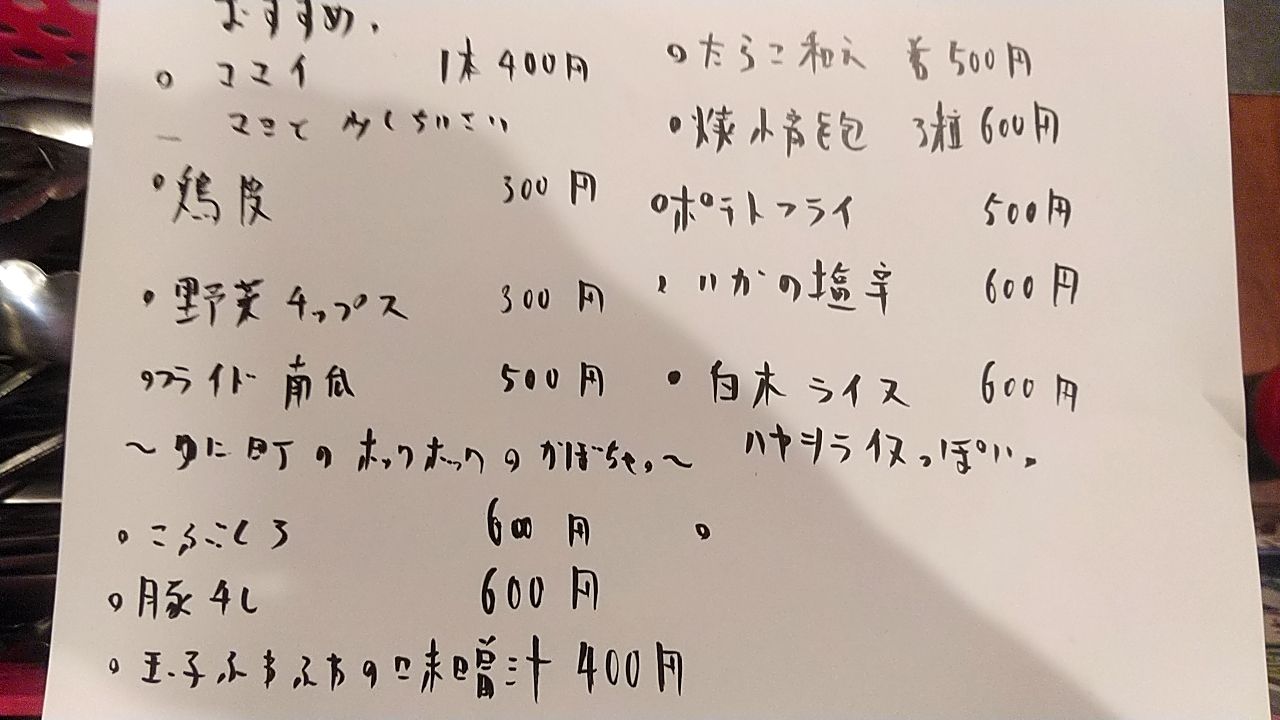 おすすめ。
コマイ 1本 400円
少しちいさい
鶏皮 300円
野菜チップス 300円
フライド南瓜 500円
〜ゆに町のホックホックのかぼちゃ。〜
600円
豚キムチ 600円
玉子ふわふわの味噌汁 400円
たらこ和え 500円
3粒 600円
ポテトフライ 500円
いかの塩辛 600円
ライス 600円
ハヤシライスっぽい。